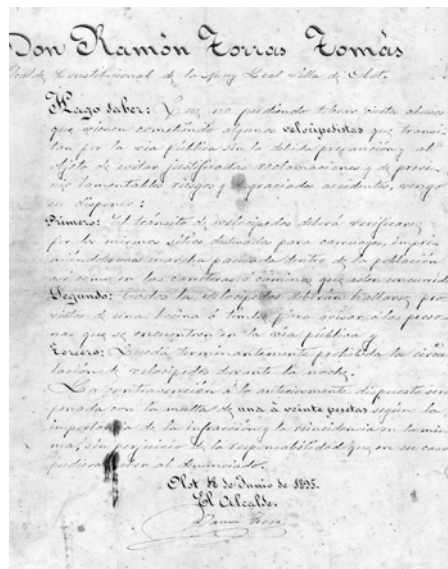 Don Ramón Torras Tomás
Alcalde Constitucional de la Muy Leal villa de Olot.
Hago saber: Que no pudiendo tolerar ciertos abusos
que vienen cometiendo algunos velocipedistas que transi-
tan por la via pública sin la debida preparación y al
objeto de evitar justificadas reclamaciones y de preve-
nir lamentables riesgos y desgraciados accidentes, vengo
en disponer:
Primero: El tránsito de velocípedos deberá verificarse
por los mismos sitios destinados para carruajes, impri-
miéndoles una marcha pausada dentro de la población
así como en las carreteras ó caminos que estén concurridos
Segundo: Todos los velocípedos deberán hallarse pro-
vistos de una bocina ó timbre para avisar á las perso-
nas que se encuentren en la vía pública y
Tercero: Queda terminantemente prohibida la circu-
lación de velocípedos durante la noche.
La contravención á lo anteriormente dispuesto será
penada con la multa de una á veinte pesetas según la
importancia de la infracción y la reincidencia en la mis-
ma, sin perjuicio de la responsabilidad que en su caso
pudiera caber al denunciado.
Olot 18 de Junio de 1895.
El Alcalde.